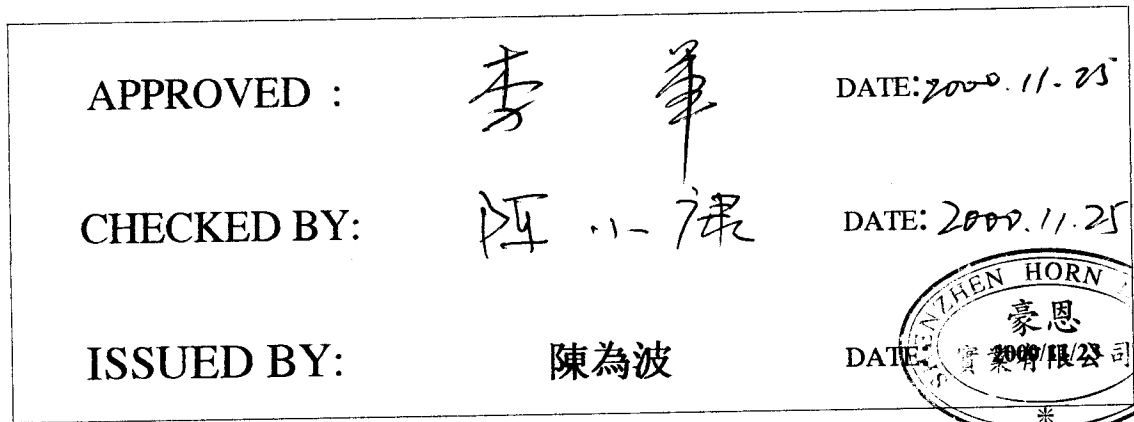 APPROVED : 李 華 DATE:2000.11.25
CHECKED BY: 陈小康 DATE: 2000.11.25
ISSUED BY: 陳為波 DATE: 2000/11/23
SHENZHEN HORN
豪恩
實業有限公司